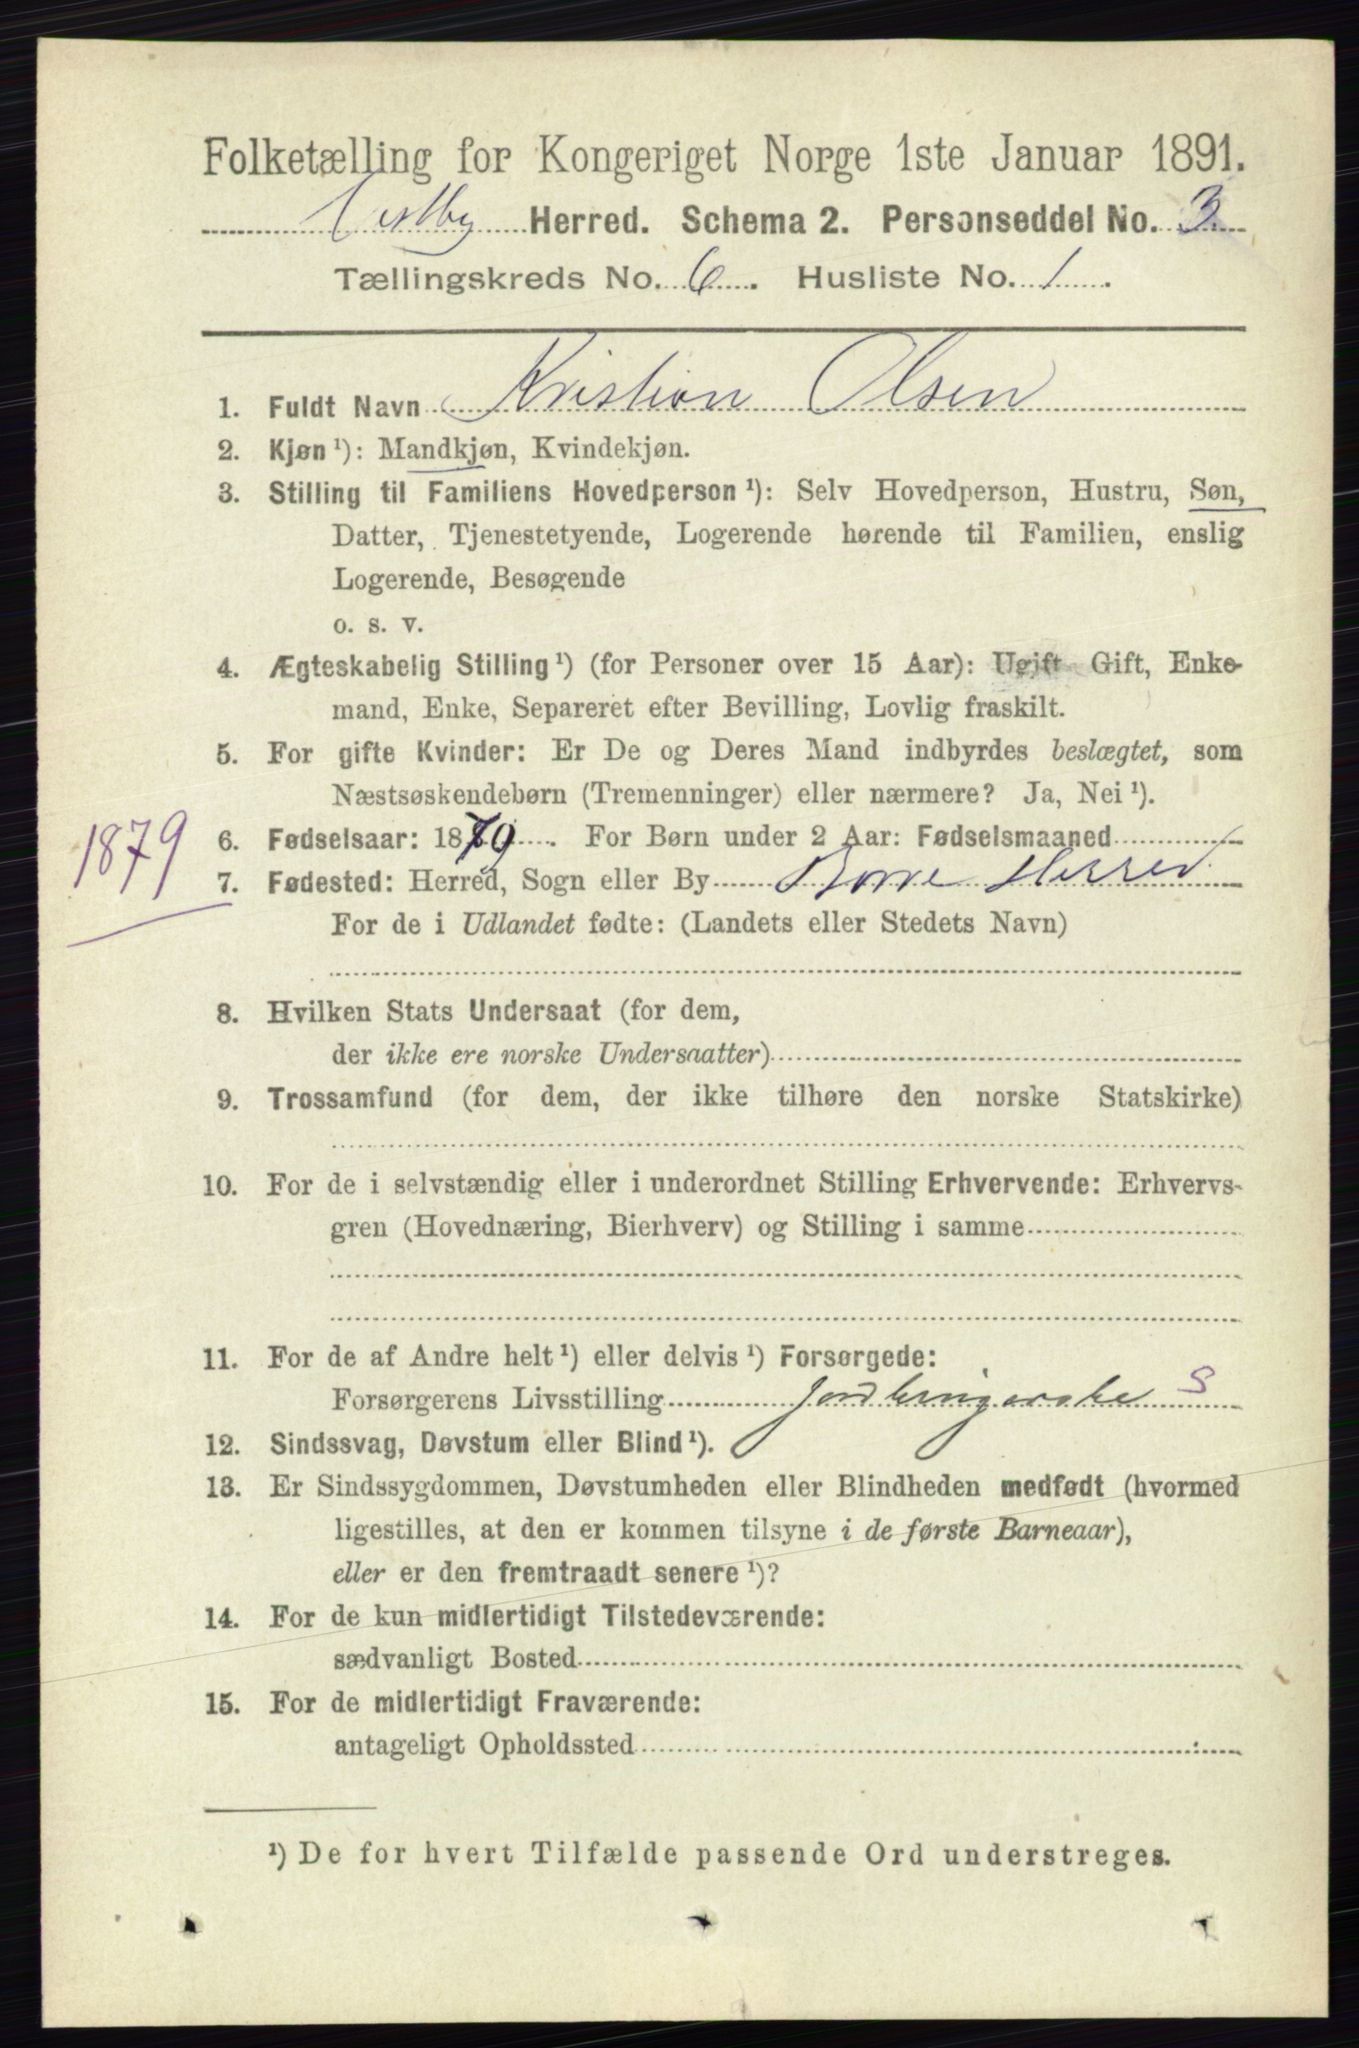 Folketælling for Kongeriget Norge 1ste Januar 1891.
Vestby Herred. Schema 2. Personseddel No. 3
Tællingskreds No. 6. Husliste No. 1.
1. Fuldt Navn Kristian Olsen
2. Kjøn ¹): Mandkjøn, Kvindekjøn.
3. Stilling til Familiens Hovedperson ¹): Selv Hovedperson, Hustru, Søn,
Datter, Tjenestetyende, Logerende hørende til Familien, enslig
Logerende, Besøgende
o. s. v.
4. Ægteskabelig Stilling ¹) (for Personer over 15 Aar): Ugift Gift, Enke-
mand, Enke, Separeret efter Bevilling, Lovlig fraskilt.
5. For gifte Kvinder: Er De og Deres Mand indbyrdes beslægtet, som
Næstsøskendebørn (Tremenninger) eller nærmere? Ja, Nei ¹).
1879
6. Fødselsaar: 1879. For Børn under 2 Aar: Fødselsmaaned
7. Fødested: Herred, Sogn eller By Borre Herred
For de i Udlandet fødte: (Landets eller Stedets Navn)
8. Hvilken Stats Undersaat (for dem,
der ikke ere norske Undersaatter)
9. Trossamfund (for dem, der ikke tilhøre den norske Statskirke)
10. For de i selvstændig eller i underordnet Stilling Erhvervende: Erhvervs-
gren (Hovednæring, Bierhverv) og Stilling i samme
11. For de af Andre helt ¹) eller delvis ¹) Forsørgede:
Forsørgerens Livsstilling S
12. Sindssvag, Døvstum eller Blind ¹).
13. Er Sindssygdommen, Døvstumheden eller Blindheden medfødt (hvormed
ligestilles, at den er kommen tilsyne i de første Barneaar),
eller er den fremtraadt senere ¹)?
14. For de kun midlertidigt Tilstedeværende:
sædvanligt Bosted
15. For de midlertidigt Fraværende:
antageligt Opholdssted
¹) De for hvert Tilfælde passende Ord understreges.